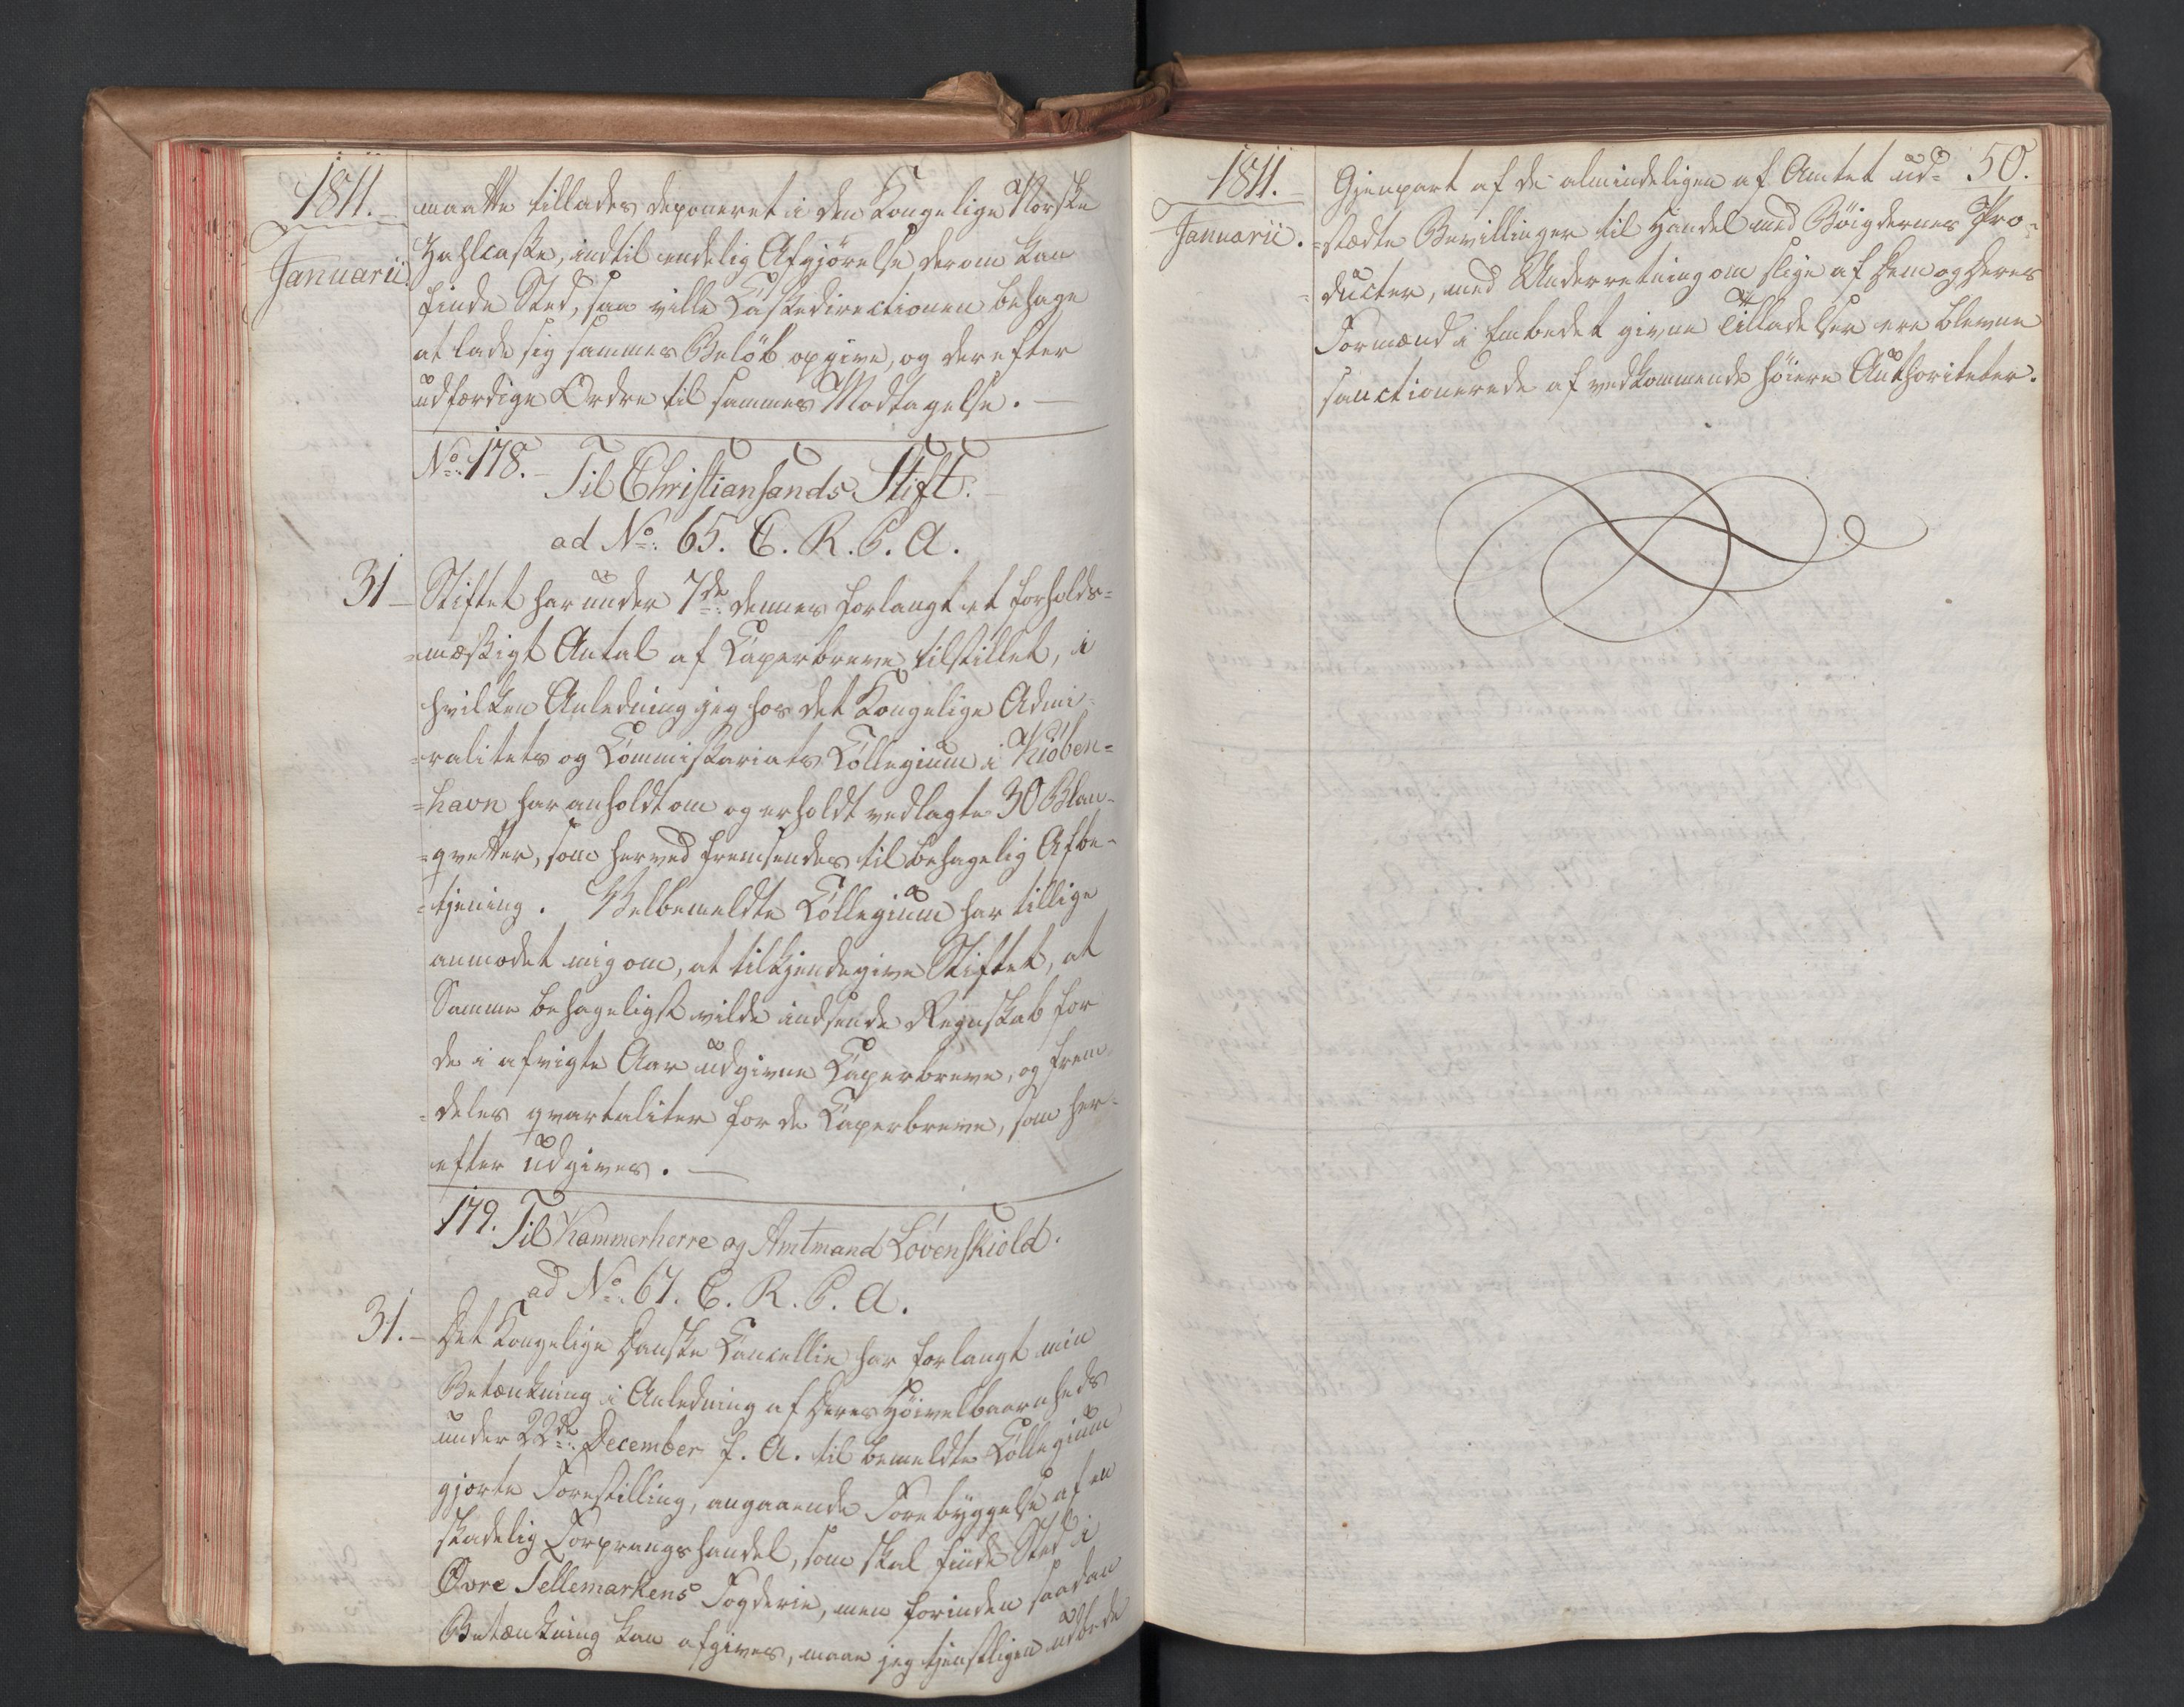 1811.
Januarii
maatte tillades deponeret i den Kongelige Norske
Zahlcasse, indtil endelig Afgjörelse derom kan
finde Sted, saa ville Cassedirectionen behage
at lade sig sammes Belöb opgive, og derefter
udfærdige Ordre til sammes Modtagelse. —
No: 178. — Til Christiansands Stift. —
ad No: 65. C. R. P. A.
31 — Stiftet har under 7de dennes forlangt et forholds=
=mæssigt Antal af Caperbreve tilstillet, i
hvilken Anledning jeg hos det Kongelige Admi=
=ralitets og Commissariats Collegium i Kiöben=
=havn har anholdt om og erholdt vedlagte 30 Blan=
=qvetter, som herved fremsendes til behagelig Afbe=
=tjening. Velbemeldte Collegium har tillige
anmodet mig om, at tilkjendegive Stiftet, at
Samme behageligst vilde indsende Regnskab for
de i afvigte Aar udgivne Caperbreve, og frem=
=deles qvartaliter for de Caperbreve, som her=
efter udgives. —
179. Til Kammerherre og Amtmand Lövenskiold.
ad No: 67. C. R. P. A.
31. — Det Kongelige Danske Cancellie har forlangt min
Betænkning i Anledning af Deres Höivelbaarnheds
under 22de December f. A. til bemeldte Collegium
gjorte Forestilling, angaaende Forebyggelse af en
skadelig Forprangshandel, som skal finde Sted i
Øvre Tellemarkens Fogderie, men forinden saadan
Betænkning kan afgives, maae jeg tjenstligen udbede
1811.
Januarii.
50.
Gjenpart af de almindeligen af Amtet ud=
=stædte Bevillinger til Handel med Böigdernes Pro=
=ducter, med Underretning om slige af Dem og Deres
Formænd i Embedet givne Tilladelser ere blevne
sanctionerede af vedkommende höiere Authoriteter.